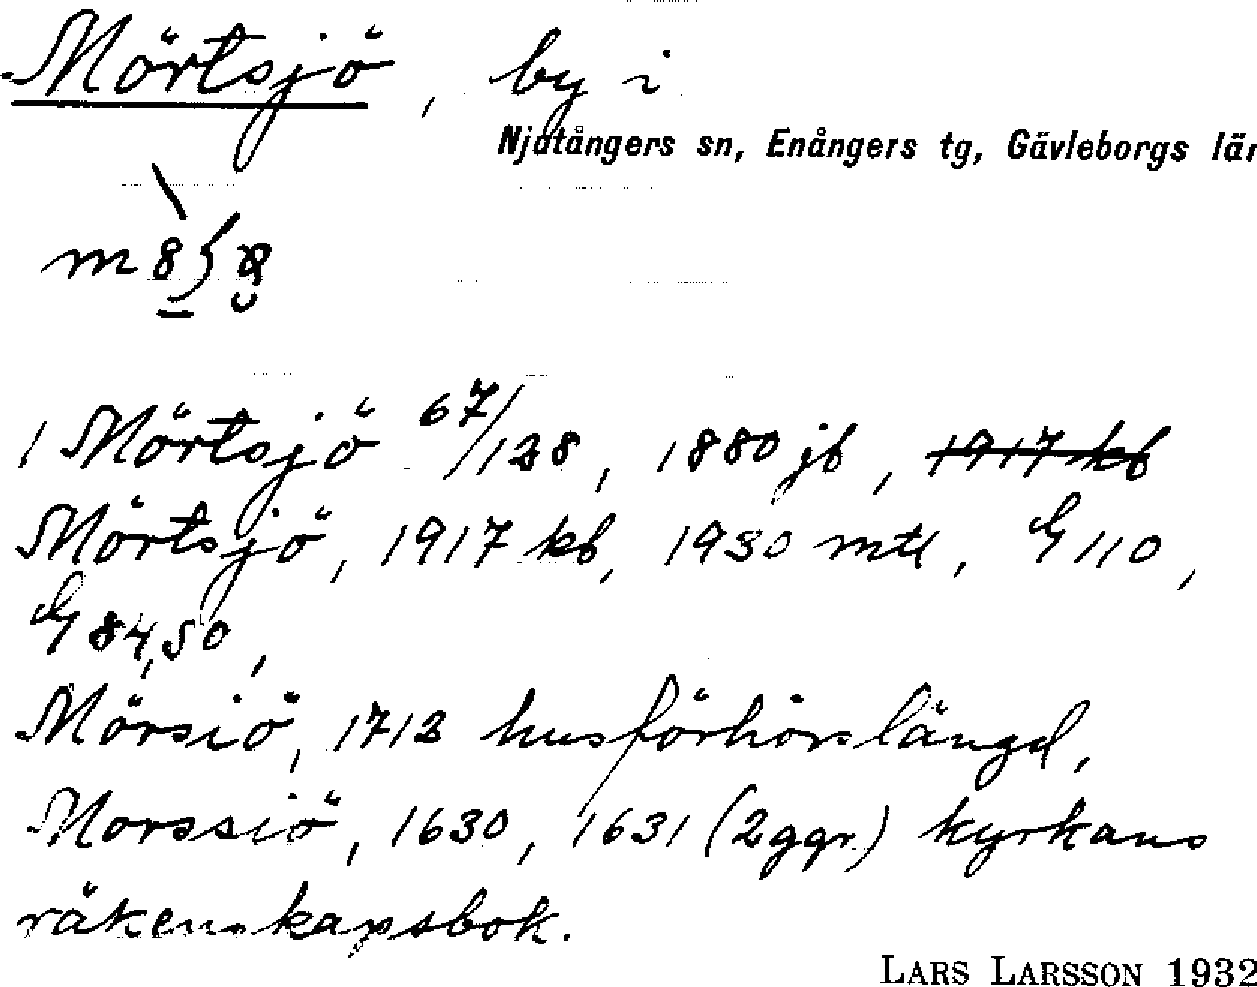 Mörtsjö, by i
Njutångers sn, Enångers tg, Gävleborgs län
1 Mörtsjö 67/128, 1880 jb, 1917 kb
Mörtsjö, 1917 kb, 1930 mtl, G 110,
G 84,50,
Mörsiö, 1712 husförhörslängd,
Morssiö, 1630, 1631 (2 ggr.) kyrkans
räkenskapsbok.
LARS LARSSON 1932